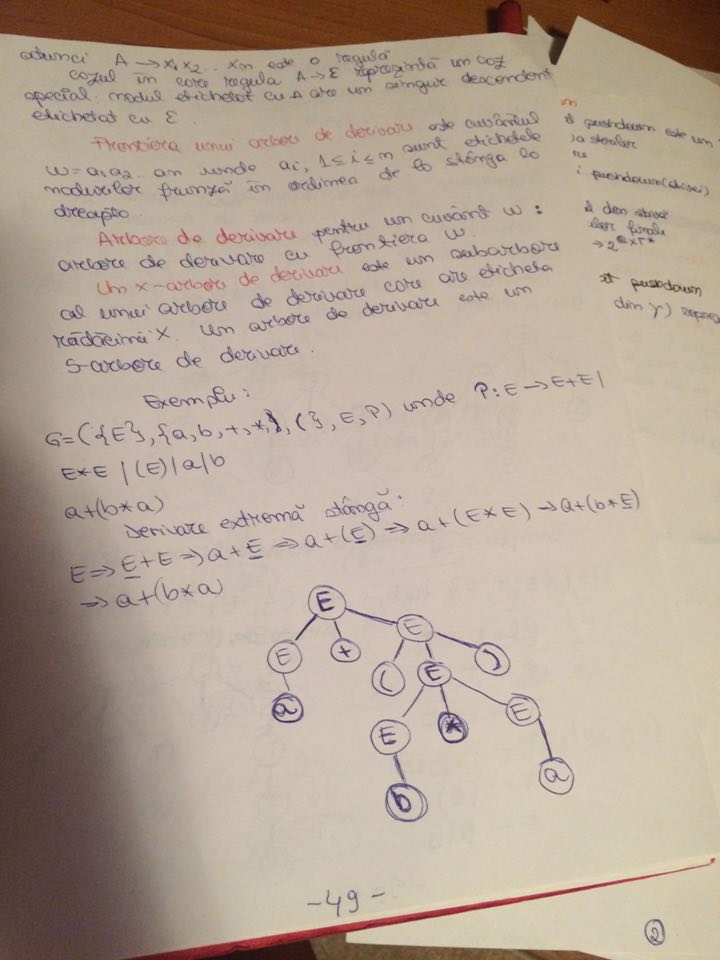 atunci A → x₁ x₂ .. xn este o regulă
cazul în care regula A → Ɛ reprezintă un caz
special. nodul etichetat cu A are un singur descendent
etichetat cu Ɛ.
Frontiera unui arbore de derivare este cuvântul
w = a₁ a₂ .. an unde ai, 1 ≤ i ≤ n sunt etichetele
nodurilor frunză în ordinea de la stânga la
dreapta.
Arbore de derivare pentru un cuvânt w :
arbore de derivare cu frontiera w
Un x-arbore de derivare este un subarbore
al unui arbore de derivare care are eticheta
rădăcină x. Un arbore de derivare este un
S-arbore de derivare.
Exemplu:
G=({E}, {a, b, +, *, ), (}, E, P) unde P: E → E+E |
E*E | (E) | a | b
a+(b*a)
Derivare extremă stângă:
E ⇒ E+E ⇒ a+E ⇒ a+(E) ⇒ a+(E*E) ⇒ a+(b*E)
⇒ a+(b*a)
E
E + E
a ( E )
E * E
b a
-49-
m
pushdown este un
i pushdown (stivei)
din stivei
lor finale
→ 2^Q×Γ*
pushdown
din γ)
2